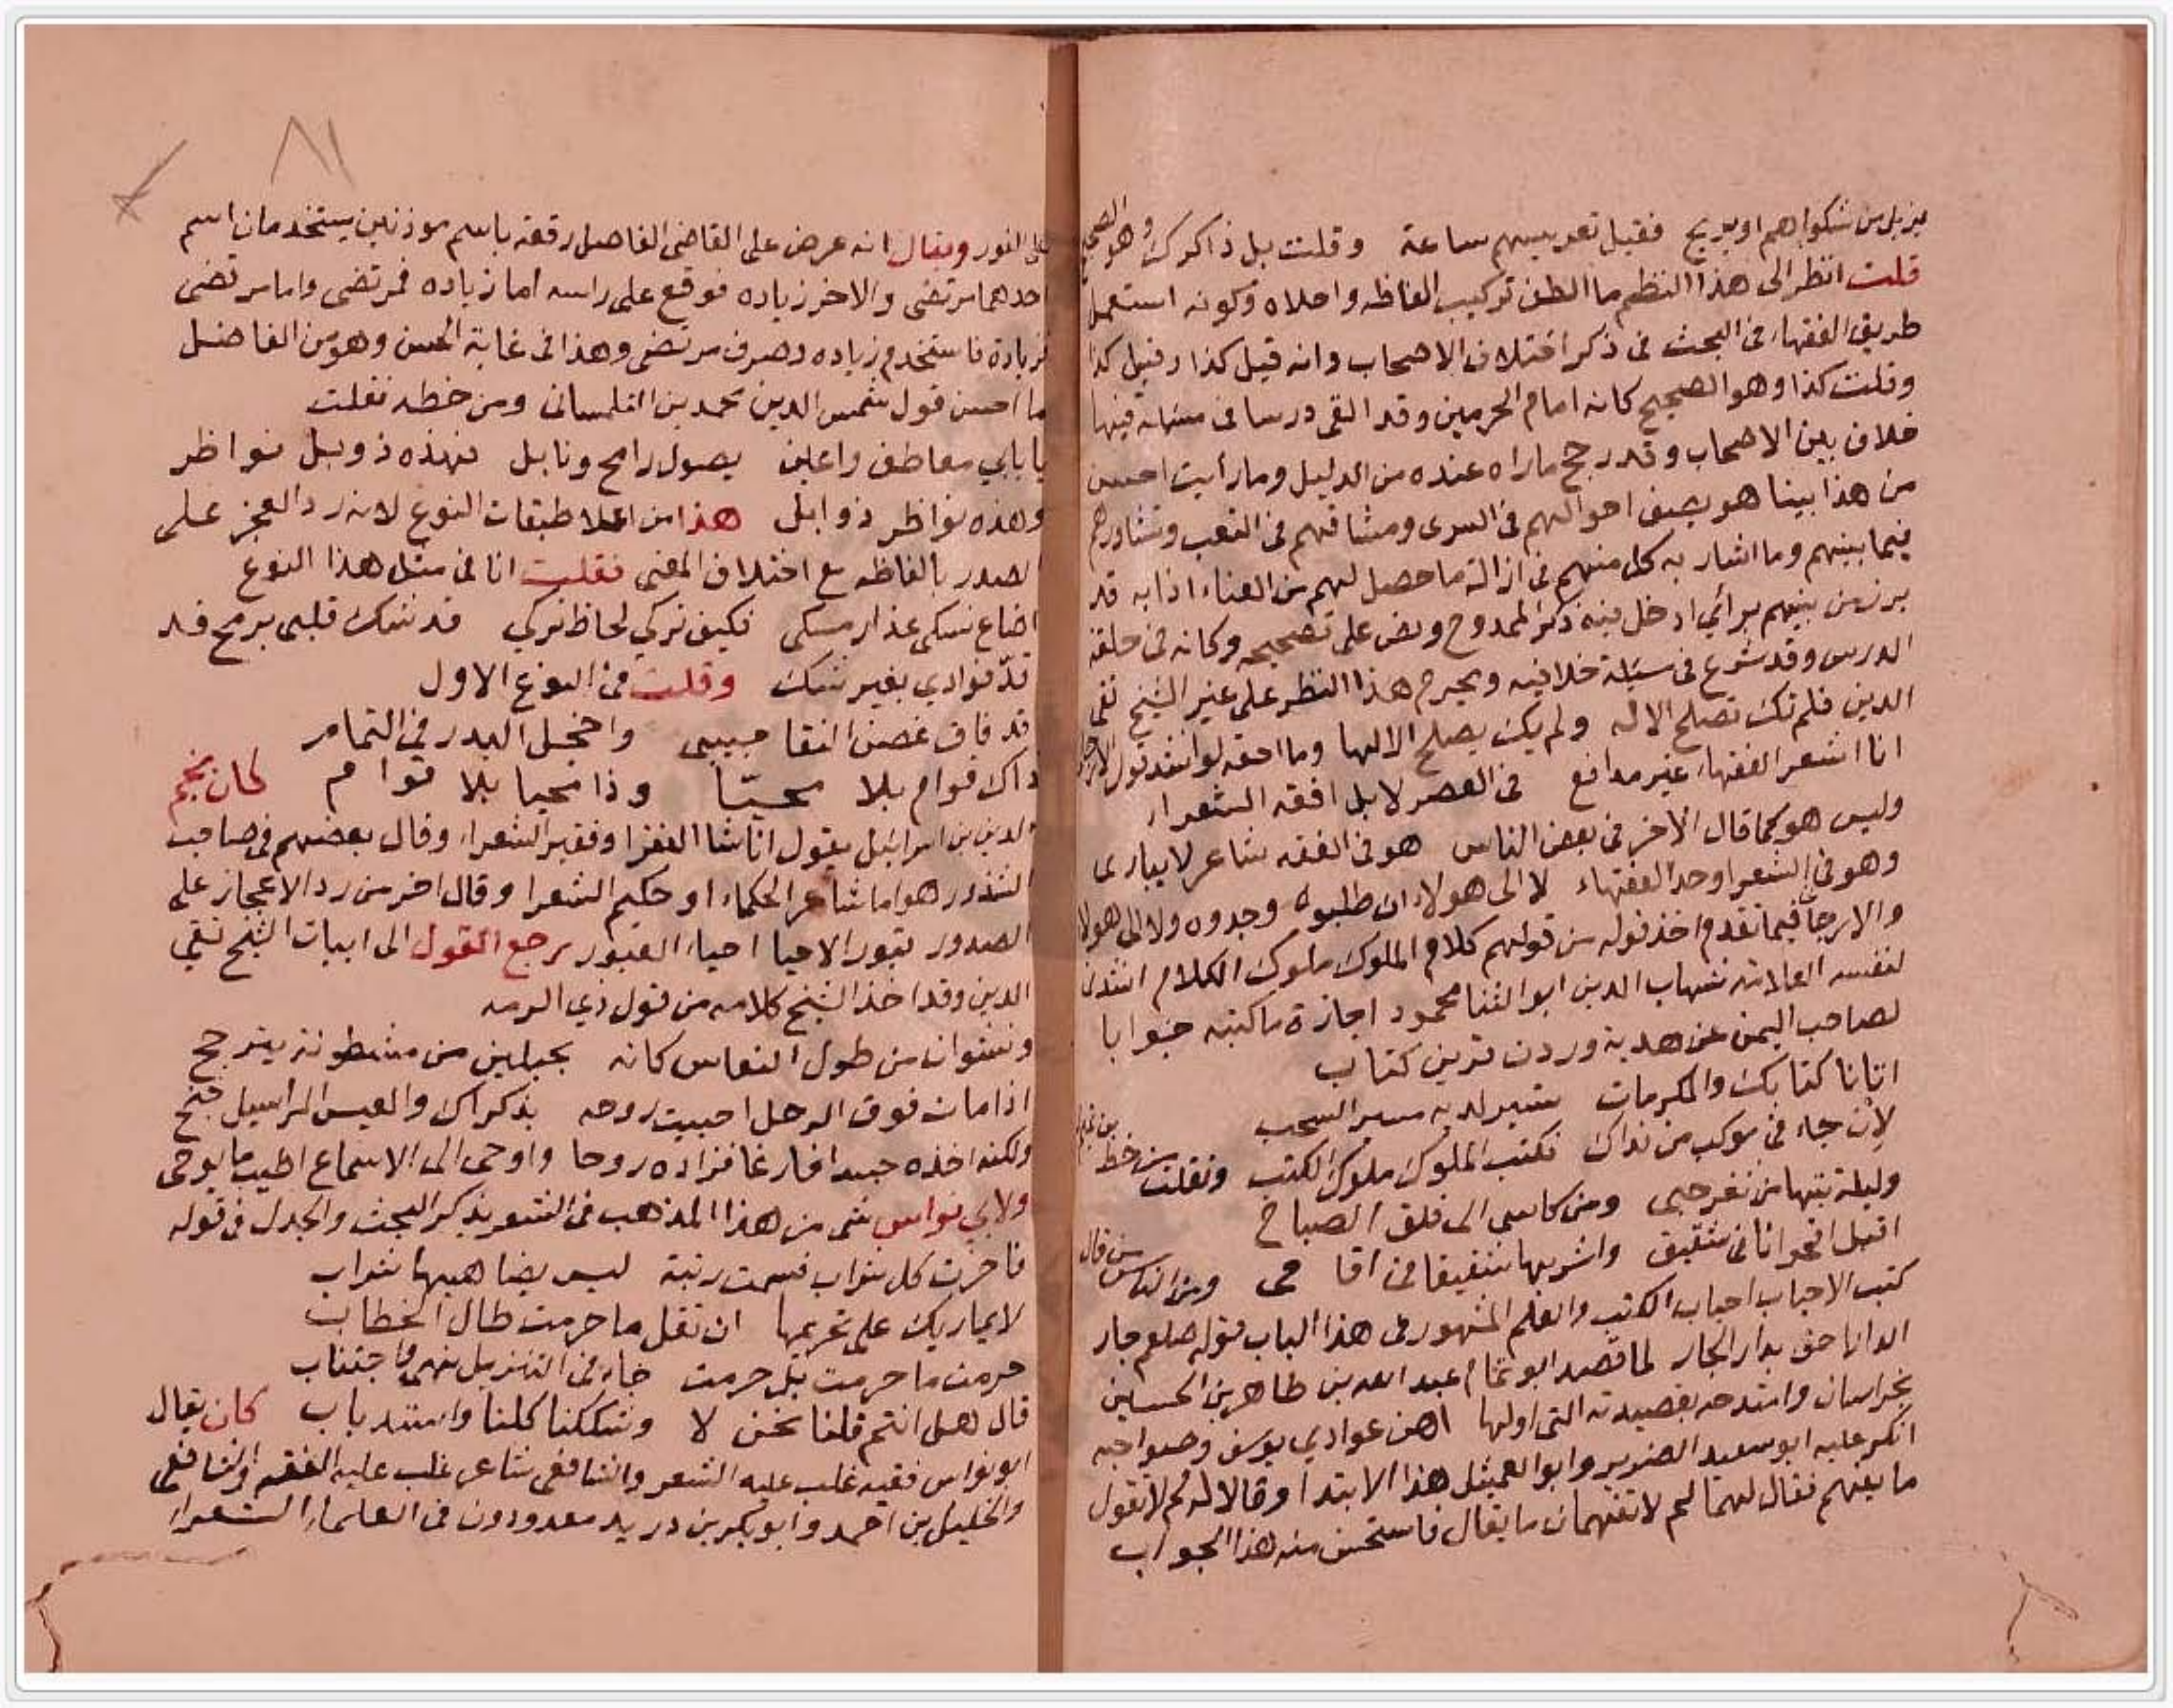 يزيل من شكواهم او يريح فقيل تعريسهم ساعة وقلت بل ذاكرك وهو الصحيح
قلت انظر الى هذا النظم ما الطف تركيب الفاظه واحلاه وكونه استعمل
طريق الفقهاء في البحث في ذكر اختلاف الاصحاب وانه قيل كذا وقيل كذا
وقلت كذا وهو الصحيح كانه امام الحرمين وقد القى درسا في مسئلة فيها
خلاف بين الاصحاب وقد رجح ما راه عنده من الدليل وما رأيت احسن
من هذا بينا هو يصف احوالهم في السرى ومشاقهم في التعب وتشاورهم
فيما بينهم وما اشار به كل منهم في ازالة ما حصل لهم من العناء اذا به قد
برز من بينهم برأي ادخل فيه ذكر الممدوح ونص على تصحيحه وكانه في حلقة
الدرس وقد شرع في مسئلة خلافيه ويحرم هذا النظر على غير الشيخ تقي
الدين فلم تك تصلح الا له ولم يك يصلح الا لها وما احقه لو انشد قول
انا اشعر الفقهاء غير مدافع في العصر لا بل افقه الشعراء
وليس هو كما قال الآخر في بعض الناس هو في الفقه شاعر لا يبارى
وهو في الشعر اوحد الفقهاء لا الى هولاء ان طلبوه وجدوه ولا الى هولا
والارجاني فيما تقدم اخذ قوله من قولهم كلام الملوك ملوك الكلام انشدني
لنفسه العلامة شهاب الدين ابو الثنا محمود اجازة ما كتبه جوابا
لصاحب اليمن عن هدية وردت قرين كتاب
اتانا كتابك والمكرمات تسير لديه مسير السحب
لان جاء في موكب من نداك فكتب الملوك ملوك الكتب ونقلت من خط
وليلة بتها من ثغر حبي ومن كاسي الى فلق الصباح
اقبل اقحوانا في شقيق واشربها شقيقا في اقاحي ومن الناس من قال
كتب الاحباب احباب الكتب والعلم المشهور في هذا الباب قوله صلعم جار
الدار احق بدار الجار لما قصد ابو تمام عبد الله بن طاهر بن الحسين
بخراسان وامتدحه بقصيدته التي اولها اهن عوادي يوسف وصواحبه
انكر عليه ابو سعيد الضرير وابو العميثل هذا الابتدا وقالا له لم لا تقول
ما يفهم فقال لهما لم لا تفهمان ما يقال فاستحسن منه هذا الجواب
٨١
على الفور ويقال انه عرض على القاضي الفاضل رقعة باسم موذنين يستخدمان اسم
احدهما مرتضى والاخر زياده فوقع على راسه اما زياده فمرتضى واما مرتضى
فزيادة فاستخدم زياده وصرف مرتضى وهذا في غاية الحسن وهو من الفاضل
ما احسن قول شمس الدين محمد بن التلمساني ومن خطه نقلت
يا بابي معاطف واعين يصول رامح ونابل فهذه ذوابل نواظر
وهذه نواظر ذوابل هذا من اعلا طبقات النوع لانه رد العجز على
الصدر بالفاظه مع اختلاف المعنى فقلت انا في مثل هذا النوع
اضاع نسكي عذار مسكي فكيف تركي لحاظ تركي قد شك قلبي برمح قد
قدّ فوادي بغير شك وقلت في النوع الاول
قد فاق غصن النقا حبيبي واخجل البدر في التمام
ذاك قوام بلا محيّا وذا محيا بلا قوام كان نجم
الدين بن اسرائيل يقول انا شا الفقرا وفقير الشعراء وقال بعضهم في صاحب
الشذور هو اما شاعر الحكماء او حكيم الشعرا وقال اخر من رد الاعجاز على
الصدور قبور الاحيا احياء القبور رجع القول الى ابيات الشيخ تقي
الدين وقد اخذ الشيخ كلامه من قول ذي الرمه
ونشوان من طول النعاس كانه بحبلين من مشطونة يترجح
اذا مات فوق الرحل احييت روحه بذكراك والعيس المراسيل جنح
ولكنه اخذه جسدا فارغا فزاده روحا واوحى الى الاسماع اطيب ما يوحى
ولابي نواس شي من هذا المذهب في الشعر بذكر البحث والجدل في قوله
فاخرت كل شراب فسمت رتبة ليس يضاهيها شراب
لا يماريك على تحريمها ان تقل ما حرمت طال الخطاب
حرمت ما حرمت بل حرمت جاء في التنزيل نهي فاجتناب
قال هل انتم قلنا نحن لا وشككنا كلنا واستد باب كان يقال
ابو نواس فقيه غلب عليه الشعر والشافعي شاعر غلب عليه الفقه والشافعي
والخليل بن احمد وابو بكر بن دريد معدودون في العلماء الشعراء